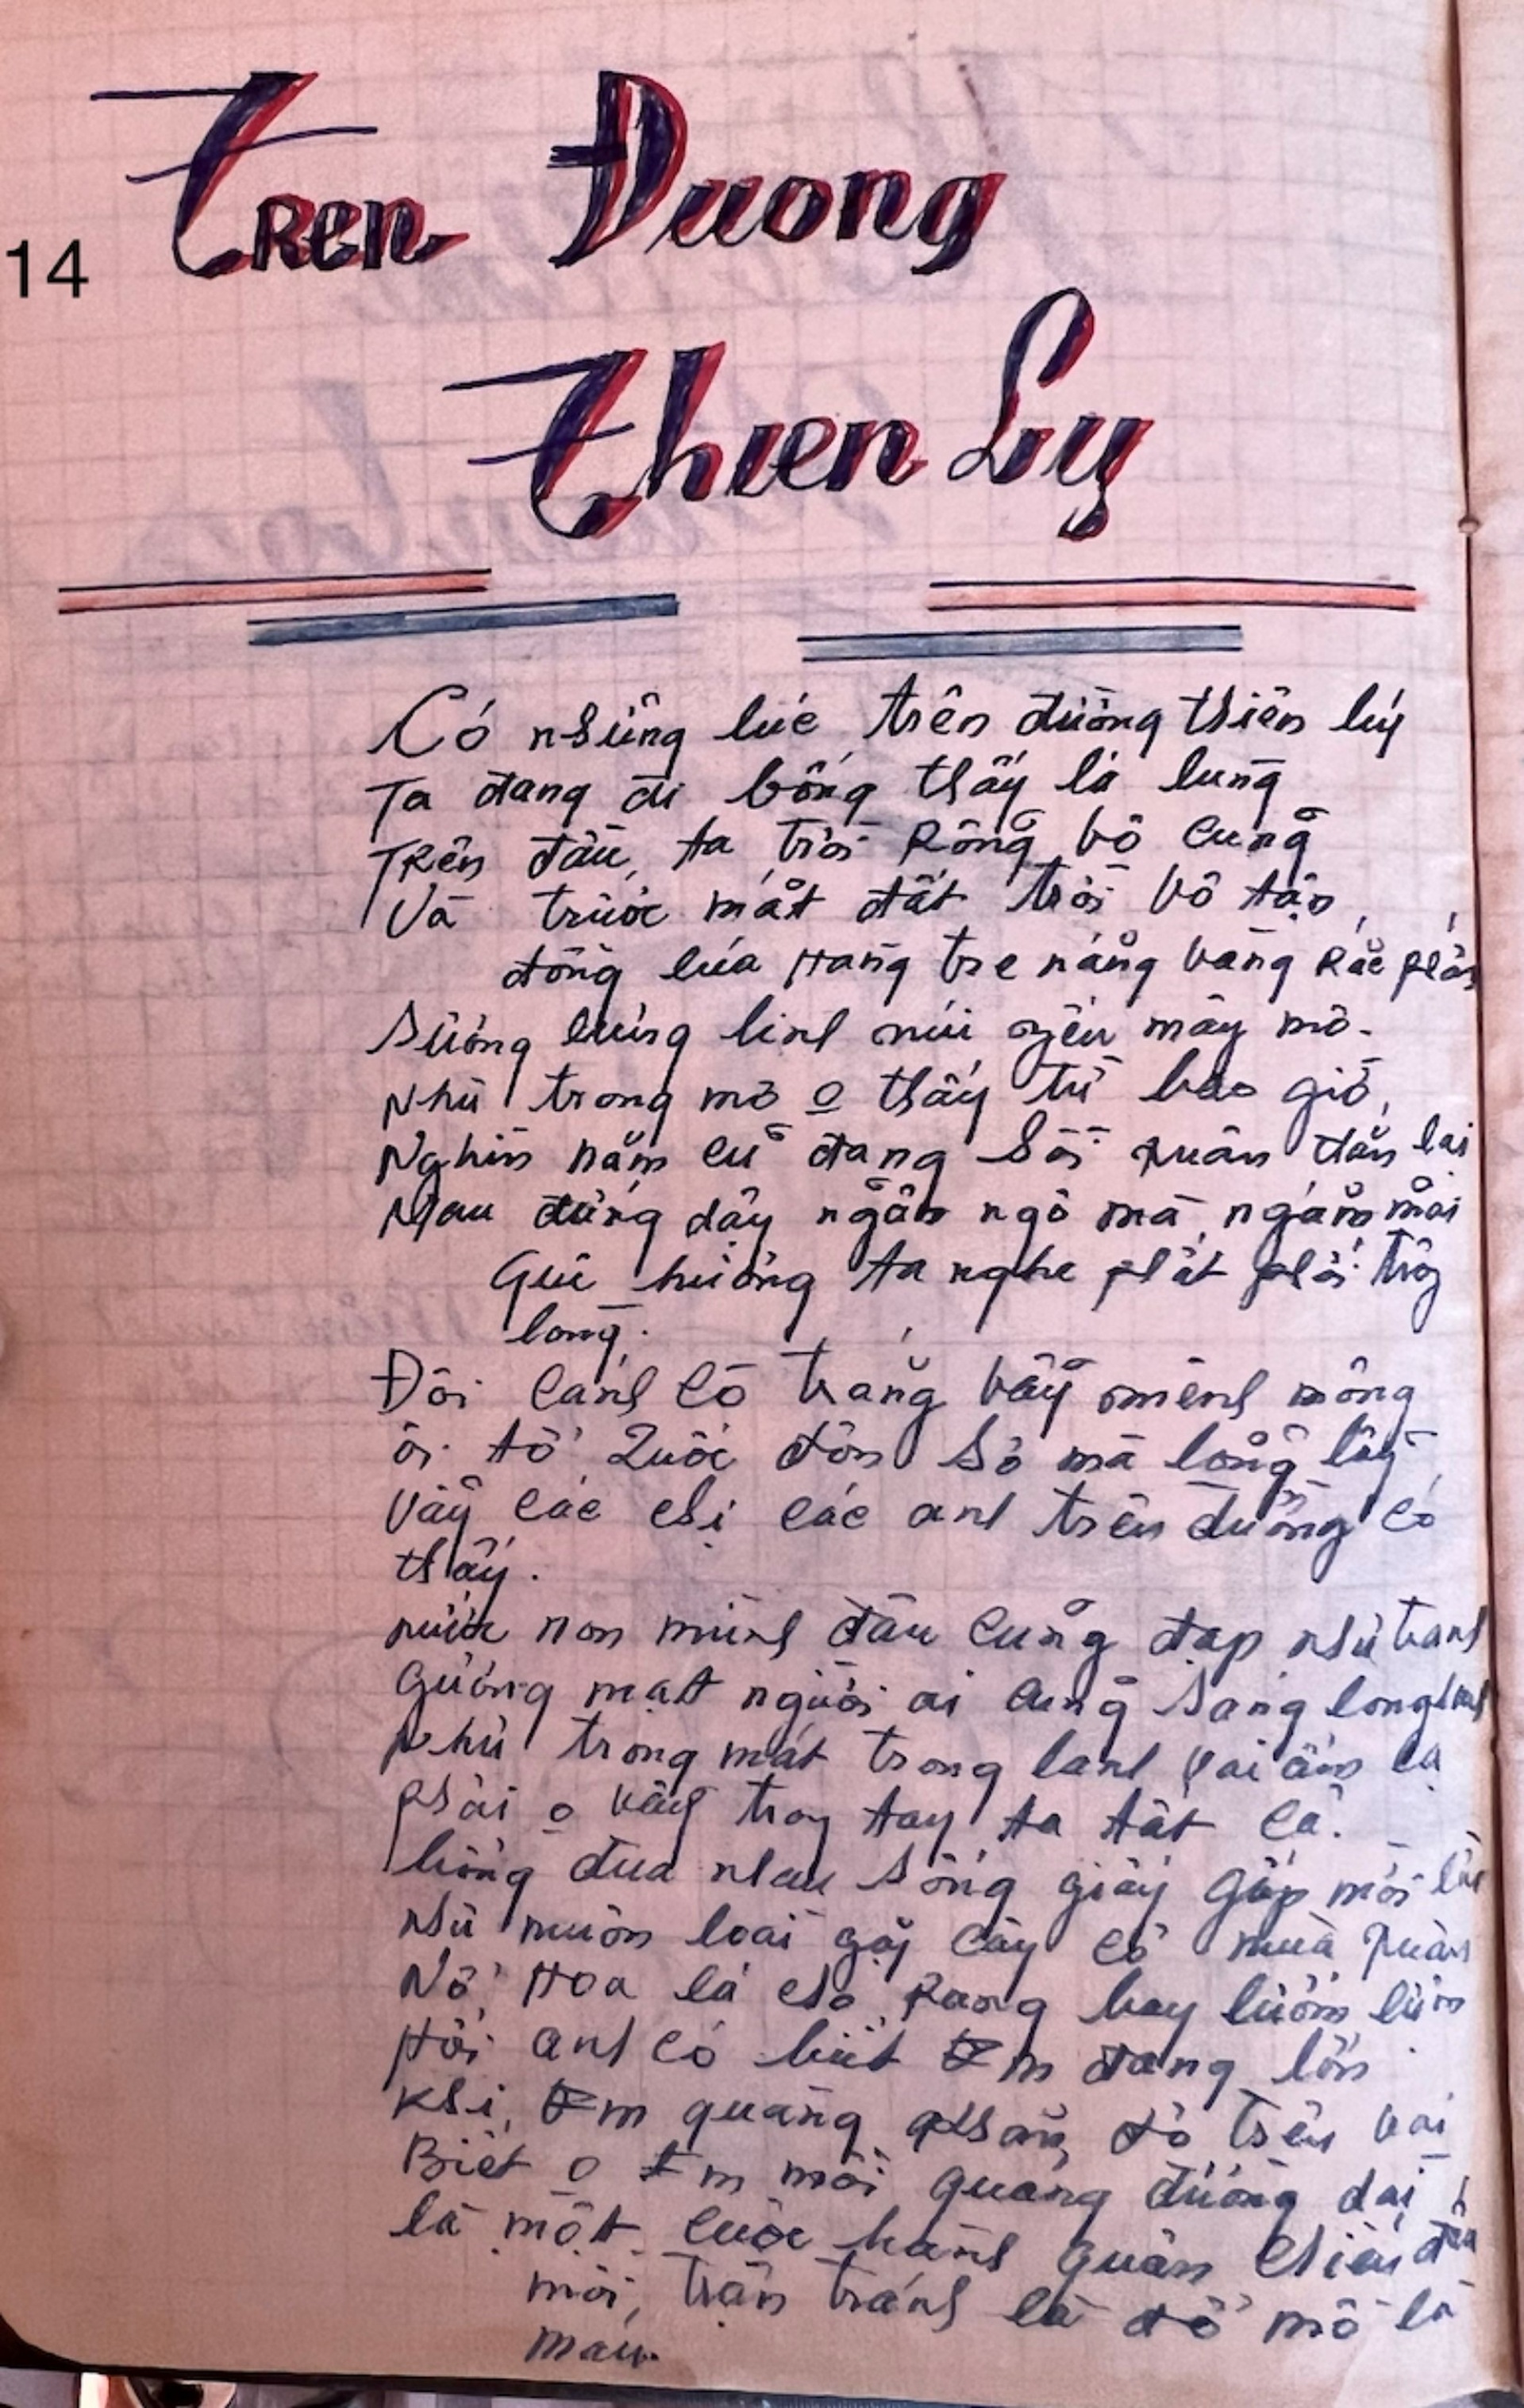 Tren Đuong
14
Thien Ly
Có những lúc trên đường thiên lý
Ta đang đi bỗng thấy lạ lùng
Trên đầu ta trời rộng vô cùng
Và trước mắt đất trời vô tận
đồng lúa Hàng tre nắng vàng
Sương lung linh núi mây mờ.
Như trong mơ o thấy từ bao giờ,
Nghìn năm cũ đang sồi quân dẫn lại
Mau đứng dậy ngẩn ngơ mà ngắm mãi
Quê hương ta nghe phất phới trong
lòng.
Đôi cánh cò trắng vẫy mênh mông
ôi tổ Quốc đơn sơ mà lộng lẫy
Vậy các chị các anh trên đường có
thấy.
nước non mình đâu cũng đẹp như tranh
Gương mặt người ai cũng sáng long lanh
Như trong mát trong lành
phải o vậy trong tay ta tất cả.
bỗng đua nhau sống giây gấp mới
như muôn loài cây cỏ mùa xuân
Nở Hoa lá cho Rang bay lượm
Hỡi anh có biết Em đang lớn
Khi Em quang trên vai
Biết o Em mỗi quãng đường dài
là một cuộc hành quân chiến đấu
mỗi trận tránh là đổ mồ là
máu.